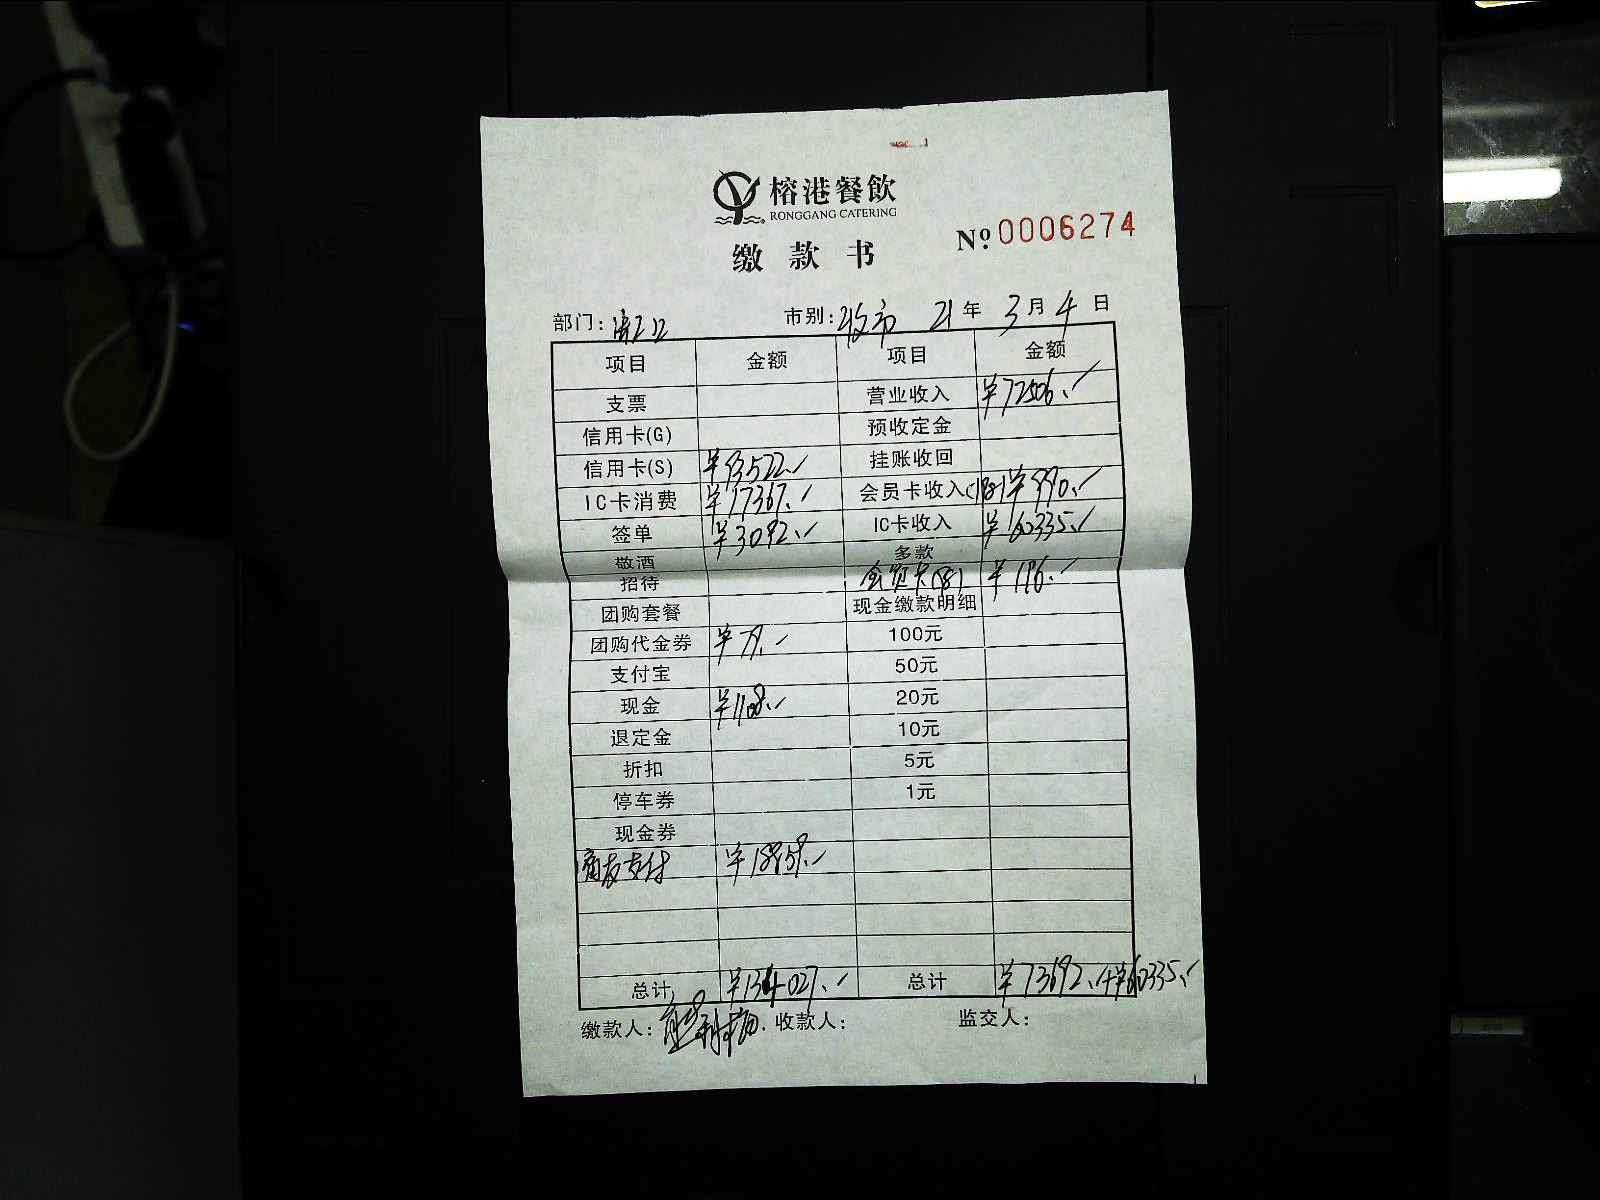 榕港餐飲
RONGGANG CATERING
缴款书
Nº 0006274
部门: 市别: 收市 21年 3月 4日
项目 金额 项目 金额
支票 营业收入 ¥72506.
信用卡(G) 预收定金
信用卡(S) ¥93522. 挂账收回
IC卡消费 ¥17367. 会员卡收入 (18) ¥990.
签单 ¥3092. IC卡收入 ¥60335.
敬酒 多款
招待 会员卡(8) ¥196.
团购套餐 现金缴款明细
团购代金券 ¥79. 100元
支付宝 50元
现金 ¥1108. 20元
退定金 10元
折扣 5元
停车券 1元
现金券
商友支付 ¥18859.
总计 ¥134027. 总计 ¥73692.+¥60335.
缴款人: 收款人: 监交人: